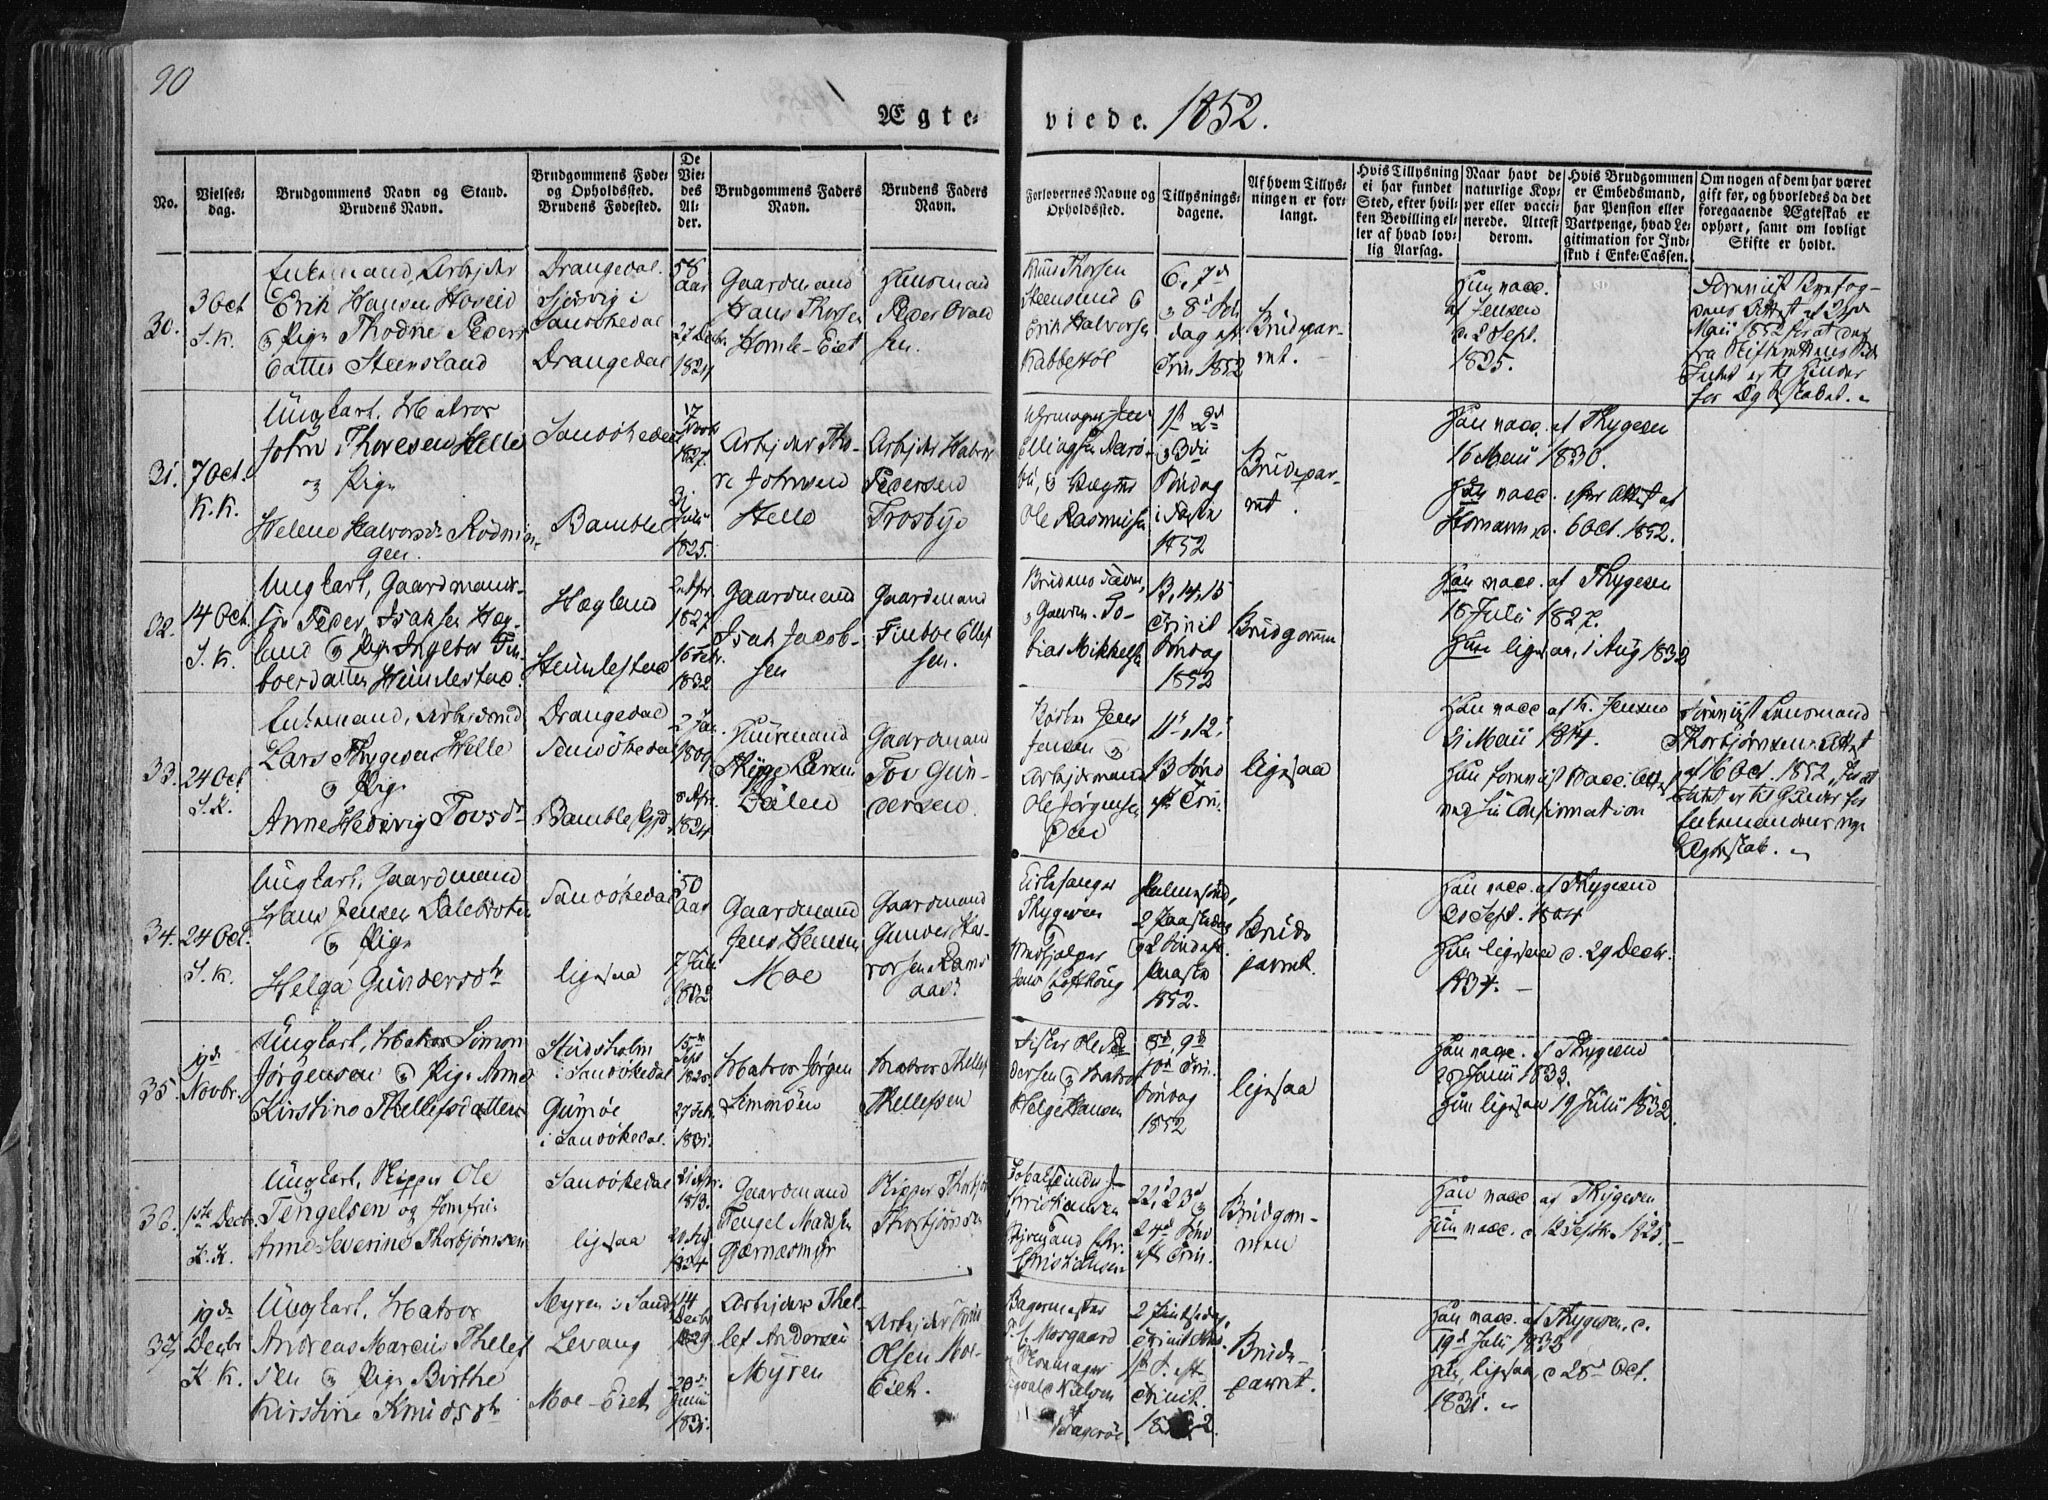 90
Ægte-
viede. 1852.
No.
Vielses-
dag.
Brudgommens Navn og Stand.
Brudens Navn.
Brudgommens Føde-
og Opholdssted.
Brudens Fødested.
De
Vie-
des
Al-
der.
Brudgommens Faders
Navn.
Brudens Faders
Navn.
Forlovernes Navne og
Opholdssted.
Tillysnings-
dagene.
Af hvem Tillys-
ningen er for-
langt.
Hvis Tillysning
ei har fundet
Sted, efter hvil-
ken Bevilling el-
ler af hvad lov-
lig Aarsag.
Naar havt de
naturlige Kop-
per eller vacci-
nerede. Attest
derom.
Hvis Brudgommen
er Embedsmand,
har Pension eller
Vartpenge, hvad Le-
gitimation for Ind-
skud i Enke-Cassen.
Om nogen af dem har været
gift før, og hvorledes da det
foregaaende Ægteskab er
ophørt, samt om lovligt
Skifte er holdt.
30.
3 Oct
S. K.
Enkemand, Arbeider
Erik Hansen Hoveid
og Pige Thodne Peders
datter Steensland
Drangedal.
i
Sanøkedal
Drangedal
58
Aar
27 Decbr
1824
Gaardmand
Hans Thorsen
Homle-Eiet
Huusmand
Peder Evald
sen.
Knud Thorsen
Steensund &
Erik Halvorsen
Kabbestøl
6, 7de
& 8de Søn
dag eft
Trin 1852
Brudepar-
ret.
Hun vacc.
af Jensen
d. 2 Sept.
1825.
Maii 1852 for at der
fra Skifterettens Side
Intet er til Hinder
for Ægteskabet.
31.
7 Oct.
K. K.
Ungkarl, Matros
John Thoresen Helle
og Pige
Helene Halvorsdr Rødnin
gen.
Sanøkedal
Bamble
17
1827.
31
Julii
1825.
Arbeider Tho-
re Johnsen
Helle
Arbeider Halvor
Pedersen
Trosbye
Uhrmager Jens
Ole Rasmussen
1ste 2den
& 3die
Søndag
i Fasten
1852
Brudepar-
ret.
Han vacc. af Thygesen
16 Maii 1830.
Hun vacc. efter Attest af
Homann d. 6 Oct. 1852.
32.
14 Oct.
S. K.
Ungkarl, Gaardmands-
søn Peder Isaksen Hæg-
land & Pige Ingebor Fin
boedatter Heimlestad.
Hægland
Heimlestad
1827
16 Febr.
1832
Gaardmand
Isak Jacob-
sen
Gaardmand
Finboe Ellef
sen.
Brudens Fader,
& Gaardm. To-
bias Mikkelsen
13, 14, 15
Trinit
Søndag
1852
Brudgommen
Han vacc. af Thygesen
18 Julii 1827.
Hun ligesaa, 1 Aug 1832
33.
24 Oct
S. K.
Enkemand, Arbeidsmd
Lars Thygesen Helle
& Pige
Anne Hedevig Tovsdr
Drangedal
Sanøkedal
Bamble Pgjd
1809
8 Apr.
1824
Huusmand
Thyge Larsen
Dalen
Gaardmand
Tov Gun-
dersen
Jens
Jensen &
Arbeidsmand
Ole Jørgensen
11, 12,
13 Sønd
eft Trin.
ligesaa
Han vacc af K. Jensen
21 Maii 1814.
Hun vacc. Attest
ved sin Confirmation
Lensmand
Thorbjørnsens Attest
af 16 Oct. 1852, for at
Intet er til Hinder for
Enkemandens nye
Ægteskab.
34.
24 Oct.
S. K.
Ungkarl, Gaardmand
Hans Jensen Dalebroten
& Pige
Helga Gundersdtr
Sanøkedal
ligesaa
50
Aar
7 Febr
1802
Gaardmand
Jens Hansen
Moe
Gaardmand
Gunder Hal-
vorsen Rams
aas
Kirkesanger
Thygesen
&
Medhjelper
Jens Løfthoug
Palmesønd,
2 Paaskedag
& 2 Søndag
Paaske
1852.
Brude
parret.
Han vacc. af Thygesen
20 Sept. 1804
Hun ligesaa d. 29 Decbr.
1834.
35.
19de
Novbr.
Ungkarl, Matros Simon
Jørgensen & Pige Anne
Kirstine Thellefsdatter
Studsholm
i Sanøkedal
Gumøe
i Sanøkedal.
15de
Sept
1825
27 Febr.
1831.
Matros Jørgen
Simonsen
Matros Thellef
Thellefsen
Fisker Ole Pe
dersen & Matros
Helge Hansen
8de, 9de
10de Trin.
Søndag
1852
ligesaa
Han vacc. af Thygesen
20 Junii 1833.
Hun ligesaa 19 Julii 1832.
36.
1ste Decbr
K. K.
Ungkarl, Skipper Ole
Tengelsen og Jomfru
Anne Severine Thorbjørnsen
Sanøkedal
ligesaa
21 Apr.
1818.
20 Aug
1824
Gaardmand
Tengel Madsen
Gjernesmyr
Skipper Thorbjørn
Thorbjørnsen
Christiansen
Chr.
Christiansen
22, 23de &
24de Sønd
eft Trin.
Brudgom-
men
Han vacc af Thygesen
Hun vacc. d. 12 Septbr. 1825.
37.
19de
Decbr
K K.
Ungkarl, Matros
Andreas Marcus Thelef
sen & Pige Birthe
Kirstine Knudsdtr
Myren i Sand
Levang
Moe-Eiet
14
Decbr
1829
28de
Junii
1831.
Arbeider Thel-
lef Andersen
Myren
Arbeider Knud
Olsen Moe-
Eiet.
Bagermester
Morgaard
Nielsen
Kragerøe
2 Pintsedag,
Trinit Søn.
1ste S. eft
Trinit.
1852.
Brude-
parret.
Han vacc. af Thygesen, d.
19de Julii 1832
Hun, ligesaa, d 28de Oct.
1831.